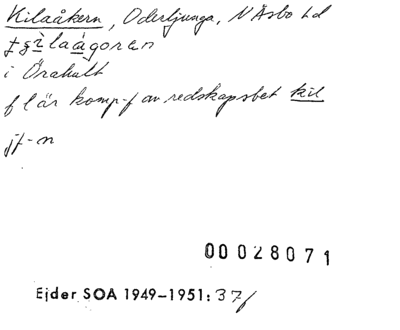 Kilaåkern, Oderljunga, N Åsbo hd
i Örahult
f l är komp-f av redskapsbet kil
jf-n
00028071
Ejder SOA 1949–1951: 37f